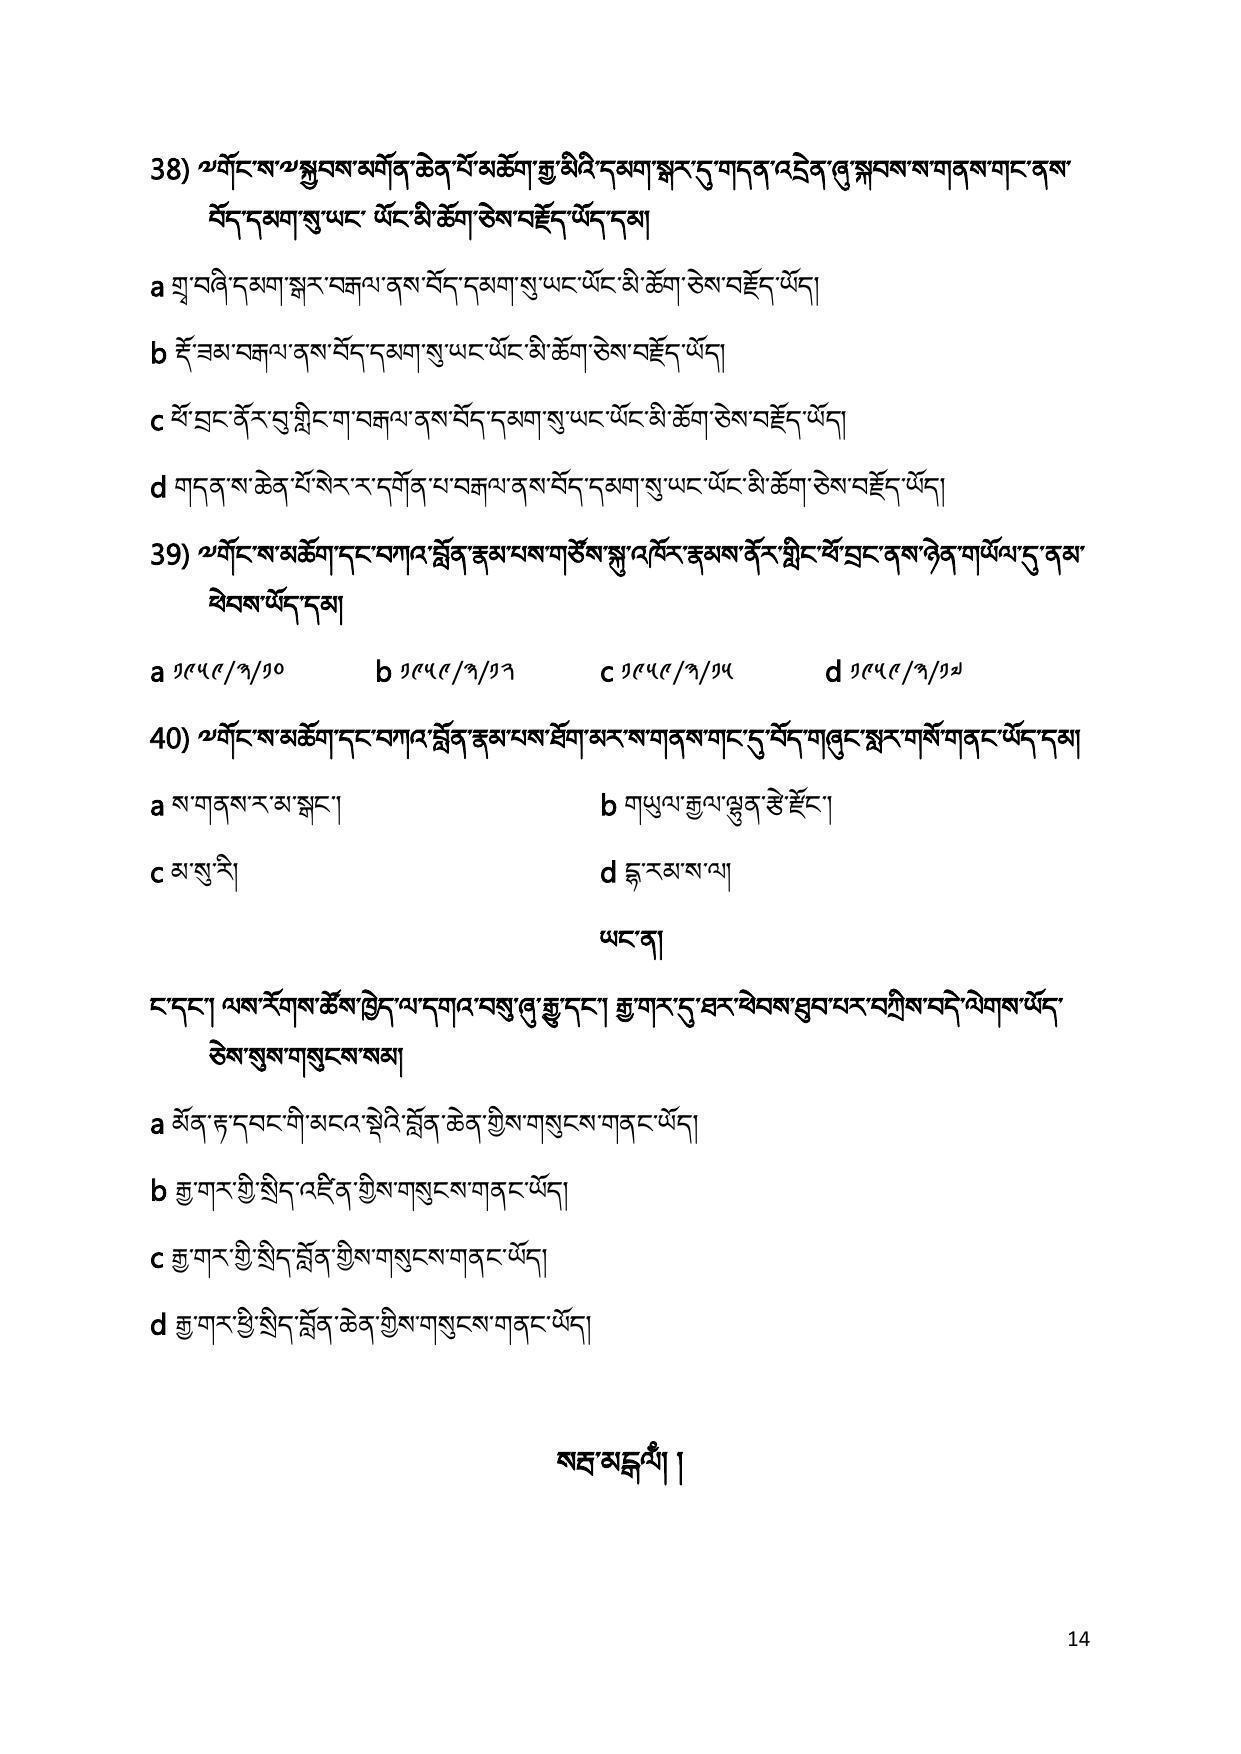 38) ༧གོང་ས་༧སྐྱབས་མགོན་ཆེན་པོ་མཆོག་རྒྱ་མིའི་དམག་སྒར་དུ་གདན་འདྲེན་ཞུ་སྐབས་ས་གནས་གང་ནས་
བོད་དམག་སུ་ཡང་ ཡོང་མི་ཆོག་ཅེས་བརྗོད་ཡོད་དམ།
a གྲྭ་བཞི་དམག་སྒར་བརྒལ་ནས་བོད་དམག་སུ་ཡང་ཡོང་མི་ཆོག་ཅེས་བརྗོད་ཡོད།
b རྡོ་ཟམ་བརྒལ་ནས་བོད་དམག་སུ་ཡང་ཡོང་མི་ཆོག་ཅེས་བརྗོད་ཡོད།
c ཕོ་བྲང་ནོར་བུ་གླིང་ག་བརྒལ་ནས་བོད་དམག་སུ་ཡང་ཡོང་མི་ཆོག་ཅེས་བརྗོད་ཡོད།
d གདན་ས་ཆེན་པོ་སེར་ར་དགོན་པ་བརྒལ་ནས་བོད་དམག་སུ་ཡང་ཡོང་མི་ཆོག་ཅེས་བརྗོད་ཡོད།
39) ༧གོང་ས་མཆོག་དང་བཀའ་བློན་རྣམ་པས་གཙོས་སྐུ་འཁོར་རྣམས་ནོར་གླིང་ཕོ་བྲང་ནས་ཉེན་གཡོལ་དུ་ནམ་
ཕེབས་ཡོད་དམ།
a ༡༩༥༩/༣/༡༠ b ༡༩༥༩/༣/༡༢ c ༡༩༥༩/༣/༡༥ d ༡༩༥༩/༣/༡༧
40) ༧གོང་ས་མཆོག་དང་བཀའ་བློན་རྣམ་པས་ཐོག་མར་ས་གནས་གང་དུ་བོད་གཞུང་སླར་གསོ་གནང་ཡོད་དམ།
a ས་གནས་ར་མ་སྒང་། b གཡུལ་རྒྱལ་ལྷུན་རྩེ་རྫོང་།
c མ་སུ་རི། d དྷ་རམ་ས་ལ།
ཡང་ན།
ང་དང་། ལས་རོགས་ཚོས་ཁྱེད་ལ་དགའ་བསུ་ཞུ་རྒྱུ་དང་། རྒྱ་གར་དུ་ཐར་ཕེབས་ཐུབ་པར་བཀྲིས་བདེ་ལེགས་ཡོད་
ཅེས་སུས་གསུངས་སམ།
a མོན་རྟ་དབང་གི་མངའ་སྡེའི་བློན་ཆེན་གྱིས་གསུངས་གནང་ཡོད།
b རྒྱ་གར་གྱི་སྲིད་འཛིན་གྱིས་གསུངས་གནང་ཡོད།
c རྒྱ་གར་གྱི་སྲིད་བློན་གྱིས་གསུངས་གནང་ཡོད།
d རྒྱ་གར་ཕྱི་སྲིད་བློན་ཆེན་གྱིས་གསུངས་གནང་ཡོད།
སརྦ་མངྒལཾ། །
14